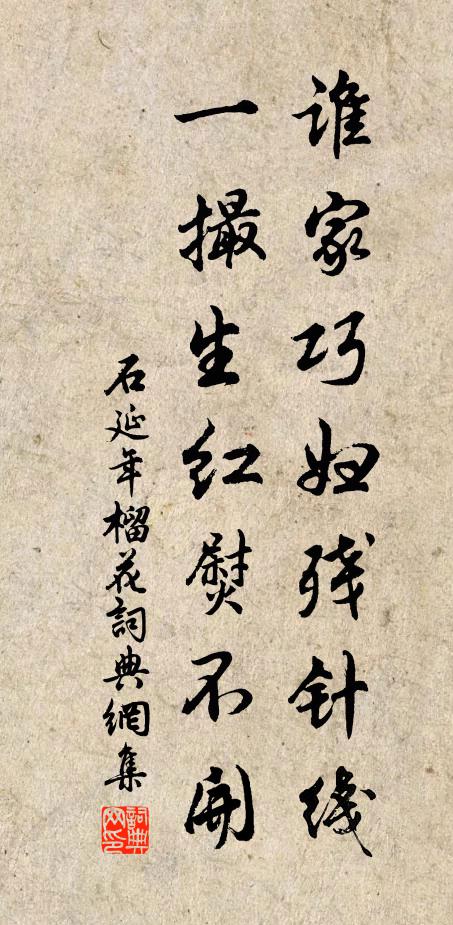 谁家巧妇残针线
一撮生红熨不开
石延年榴花詞典網集
詞典网印